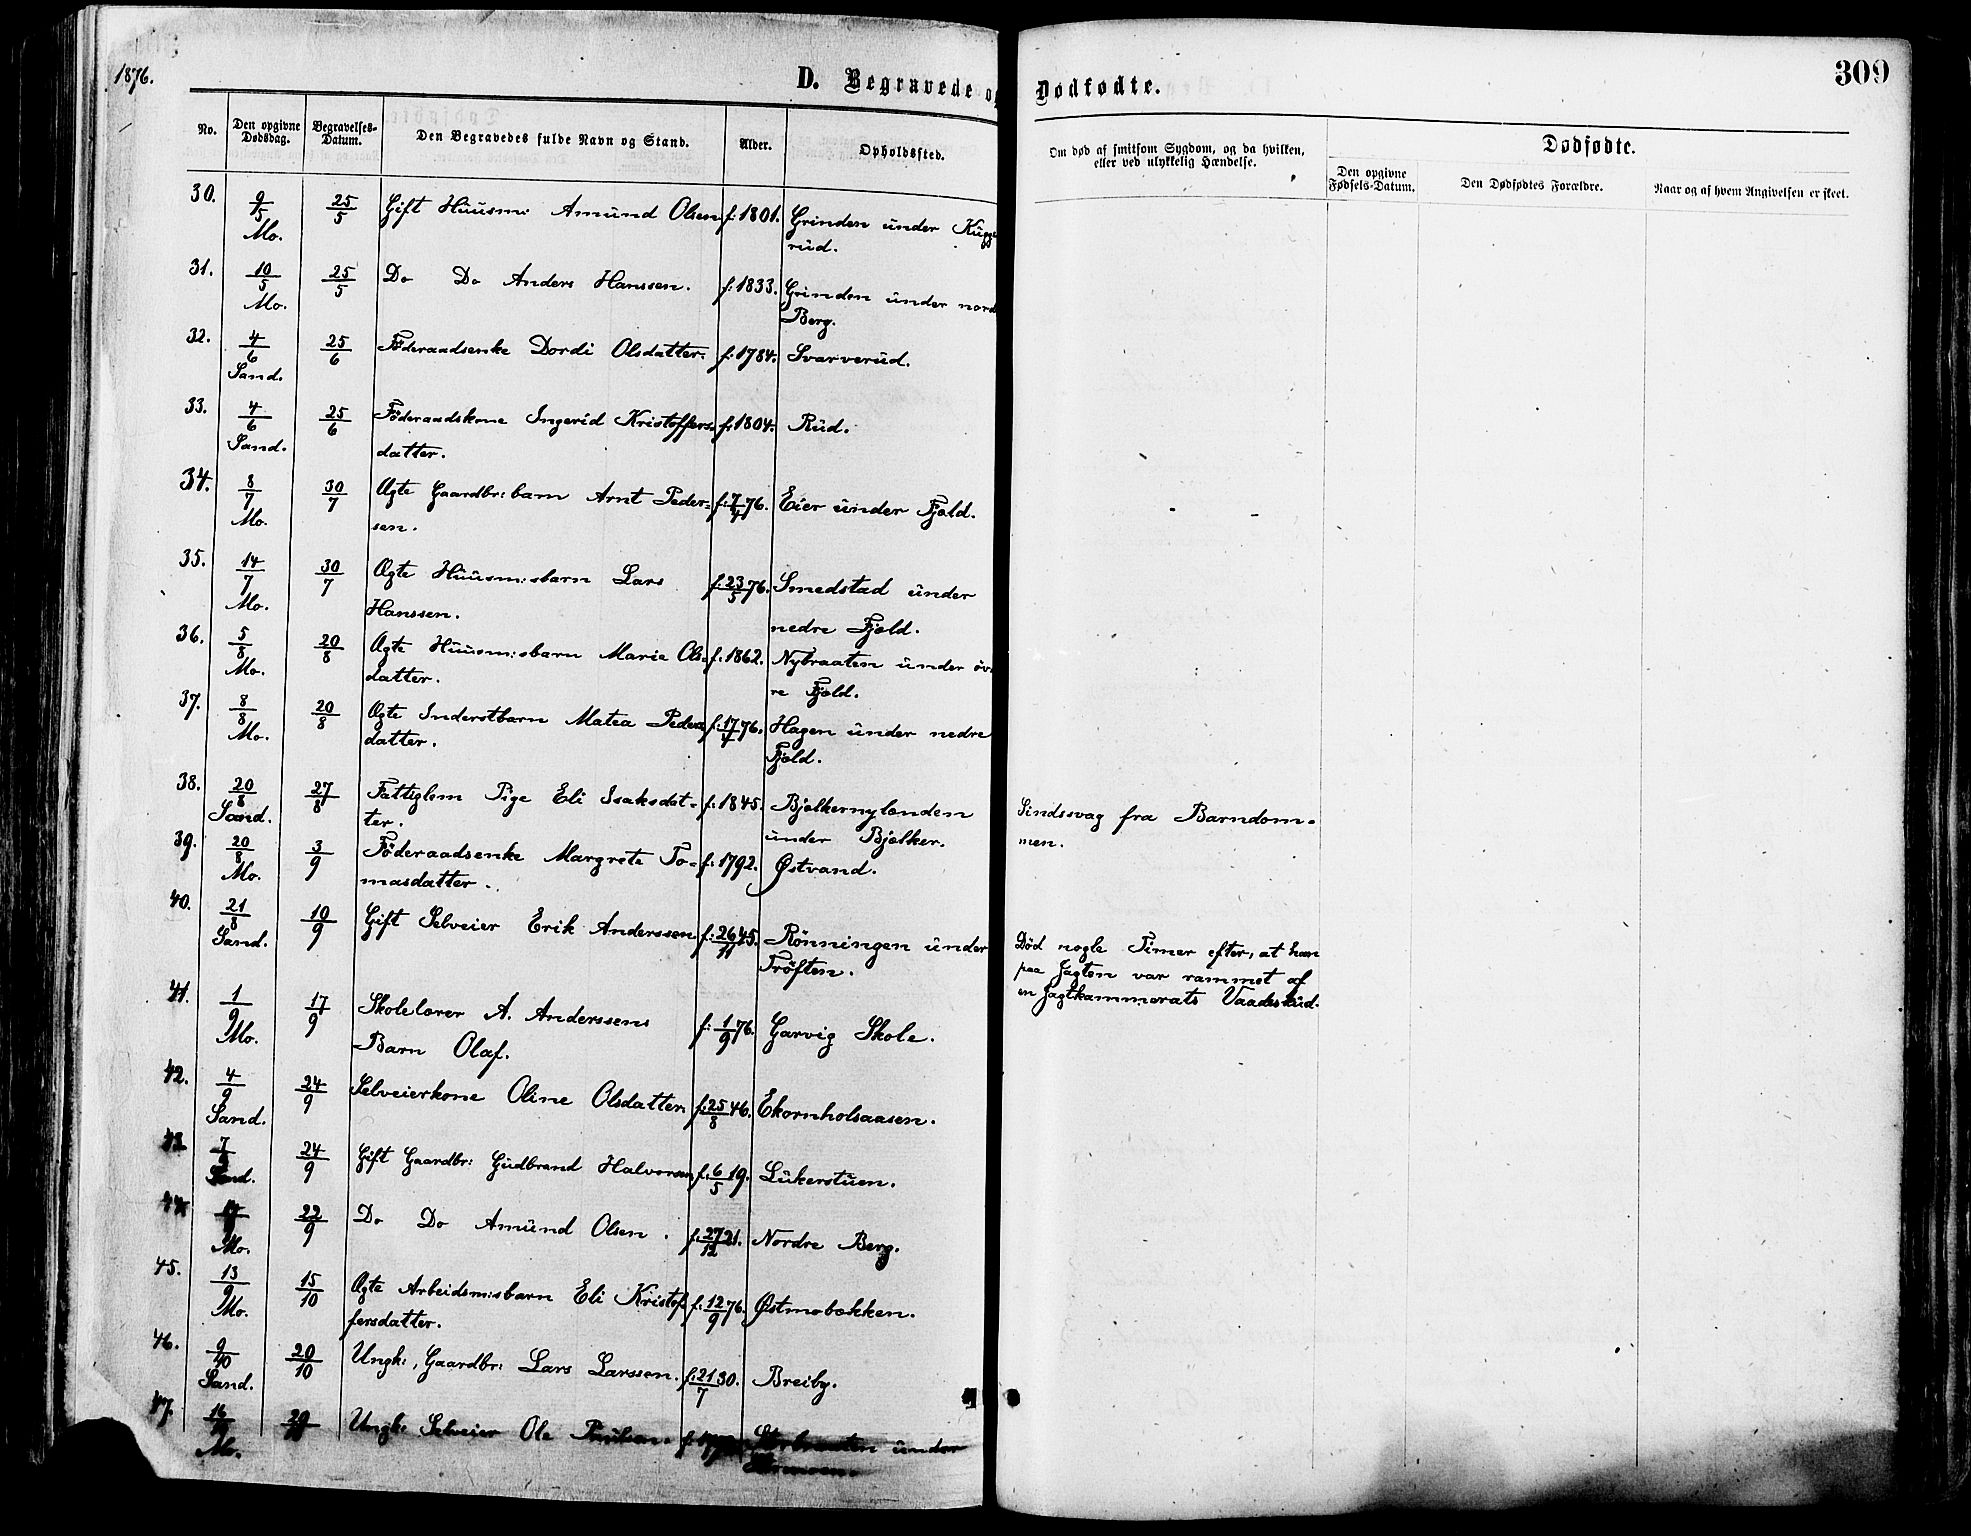 1876.
D. Begravede og Dødfødte.
309
No.
Den opgivne Dødsdag.
Begravelses-Datum.
Den Begravedes fulde Navn og Stand.
Alder.
Opholdssted.
Om død af smitsom Sygdom, og da hvilken, eller ved ulykkelig Hændelse.
Dødfødte.
Den opgivne Fødsels-Datum.
Den Dødfødtes Forældre.
Naar og af hvem Angivelsen er skeet.
30. 9/5 Mo. 25/5 Gift Huusm: Amund Olsen f: 1801. Grinden under Kugge
rud.
31. 10/5 Mo. 25/5 Do Do Anders Hanssen. f: 1833. Grinden under nord
Berg.
32. 4/6 Sand. 25/6 Föderaadsenke Dordi Olsdatter. f: 1784. Svarverud.
33. 4/6 Sand. 25/6 Föderaadskone Ingerid Kristoffers- f: 1804. Rud.
datter.
34. 8/7 Mo. 30/7 Ægte Gaardbr: barn Arnt Peder= f: 7/4 76. Eier under Fjeld.
sen.
35. 14/7 Mo. 30/7 Ægte Huusm:sbarn Lars f: 23/5 76. Smedstad under
Hanssen. nedre Fjeld.
36. 5/8 Mo. 20/8 Ægte Huusm:sbarn Marie Ols- f: 1862. Nybraaten under öv-
datter. re Fjeld.
37. 8/8 Mo. 20/8 Ægte Inderstbarn Matea Peders f: 17/4 76. Hagen under nedre
datter. Fjeld.
38. 20/8 Sand. 27/8 Fattiglem Pige Eli Isaksdat- f: 1845. Bjelkernylenden Sindssvag fra Barndom-
ter. under Bjelker. men.
39. 20/8 Mo. 3/9 Föderaadsenke Margrete To- f: 1792. Østvand.
masdatter.
40. 21/8 Sand. 10/9 Gift Selveier Erik Anderssen f: 26/11 45. Rönningen under Død nogle Timer efter, at han
Tröften. paa Jagten var rammet af
en Jagtkammerats Vaadeskud.
41. 1/9 Mo. 17/9 Skolelærer A. Anderssens f: 1/9 76. Garvig Skole.
Barn Olaf.
42. 4/9 Sand. 24/9 Selveierkone Oline Olsdatter f: 25/8 46. Ekornholsaasen.
43. 7/9 Sand. 24/9 Gift Gaardbr: Gudbrand Halvorsen f: 6/5 19. Lukerstuen.
44. Mo. 22/9 Do Do Amund Olsen. f: 27/12 21. Nordre Berg.
45. 13/9 Mo. 15/10 Ægte Arbeidsm:sbarn Eli Kristof f: 12/9 76. Østmobækken.
fersdatter.
46. 9/10 Sand. 20/10 Ungk:, Gaardbr: Lars Larssen. f: 21/7 30. Breiby.
47. Mo. Ungk: Selveier Ole under